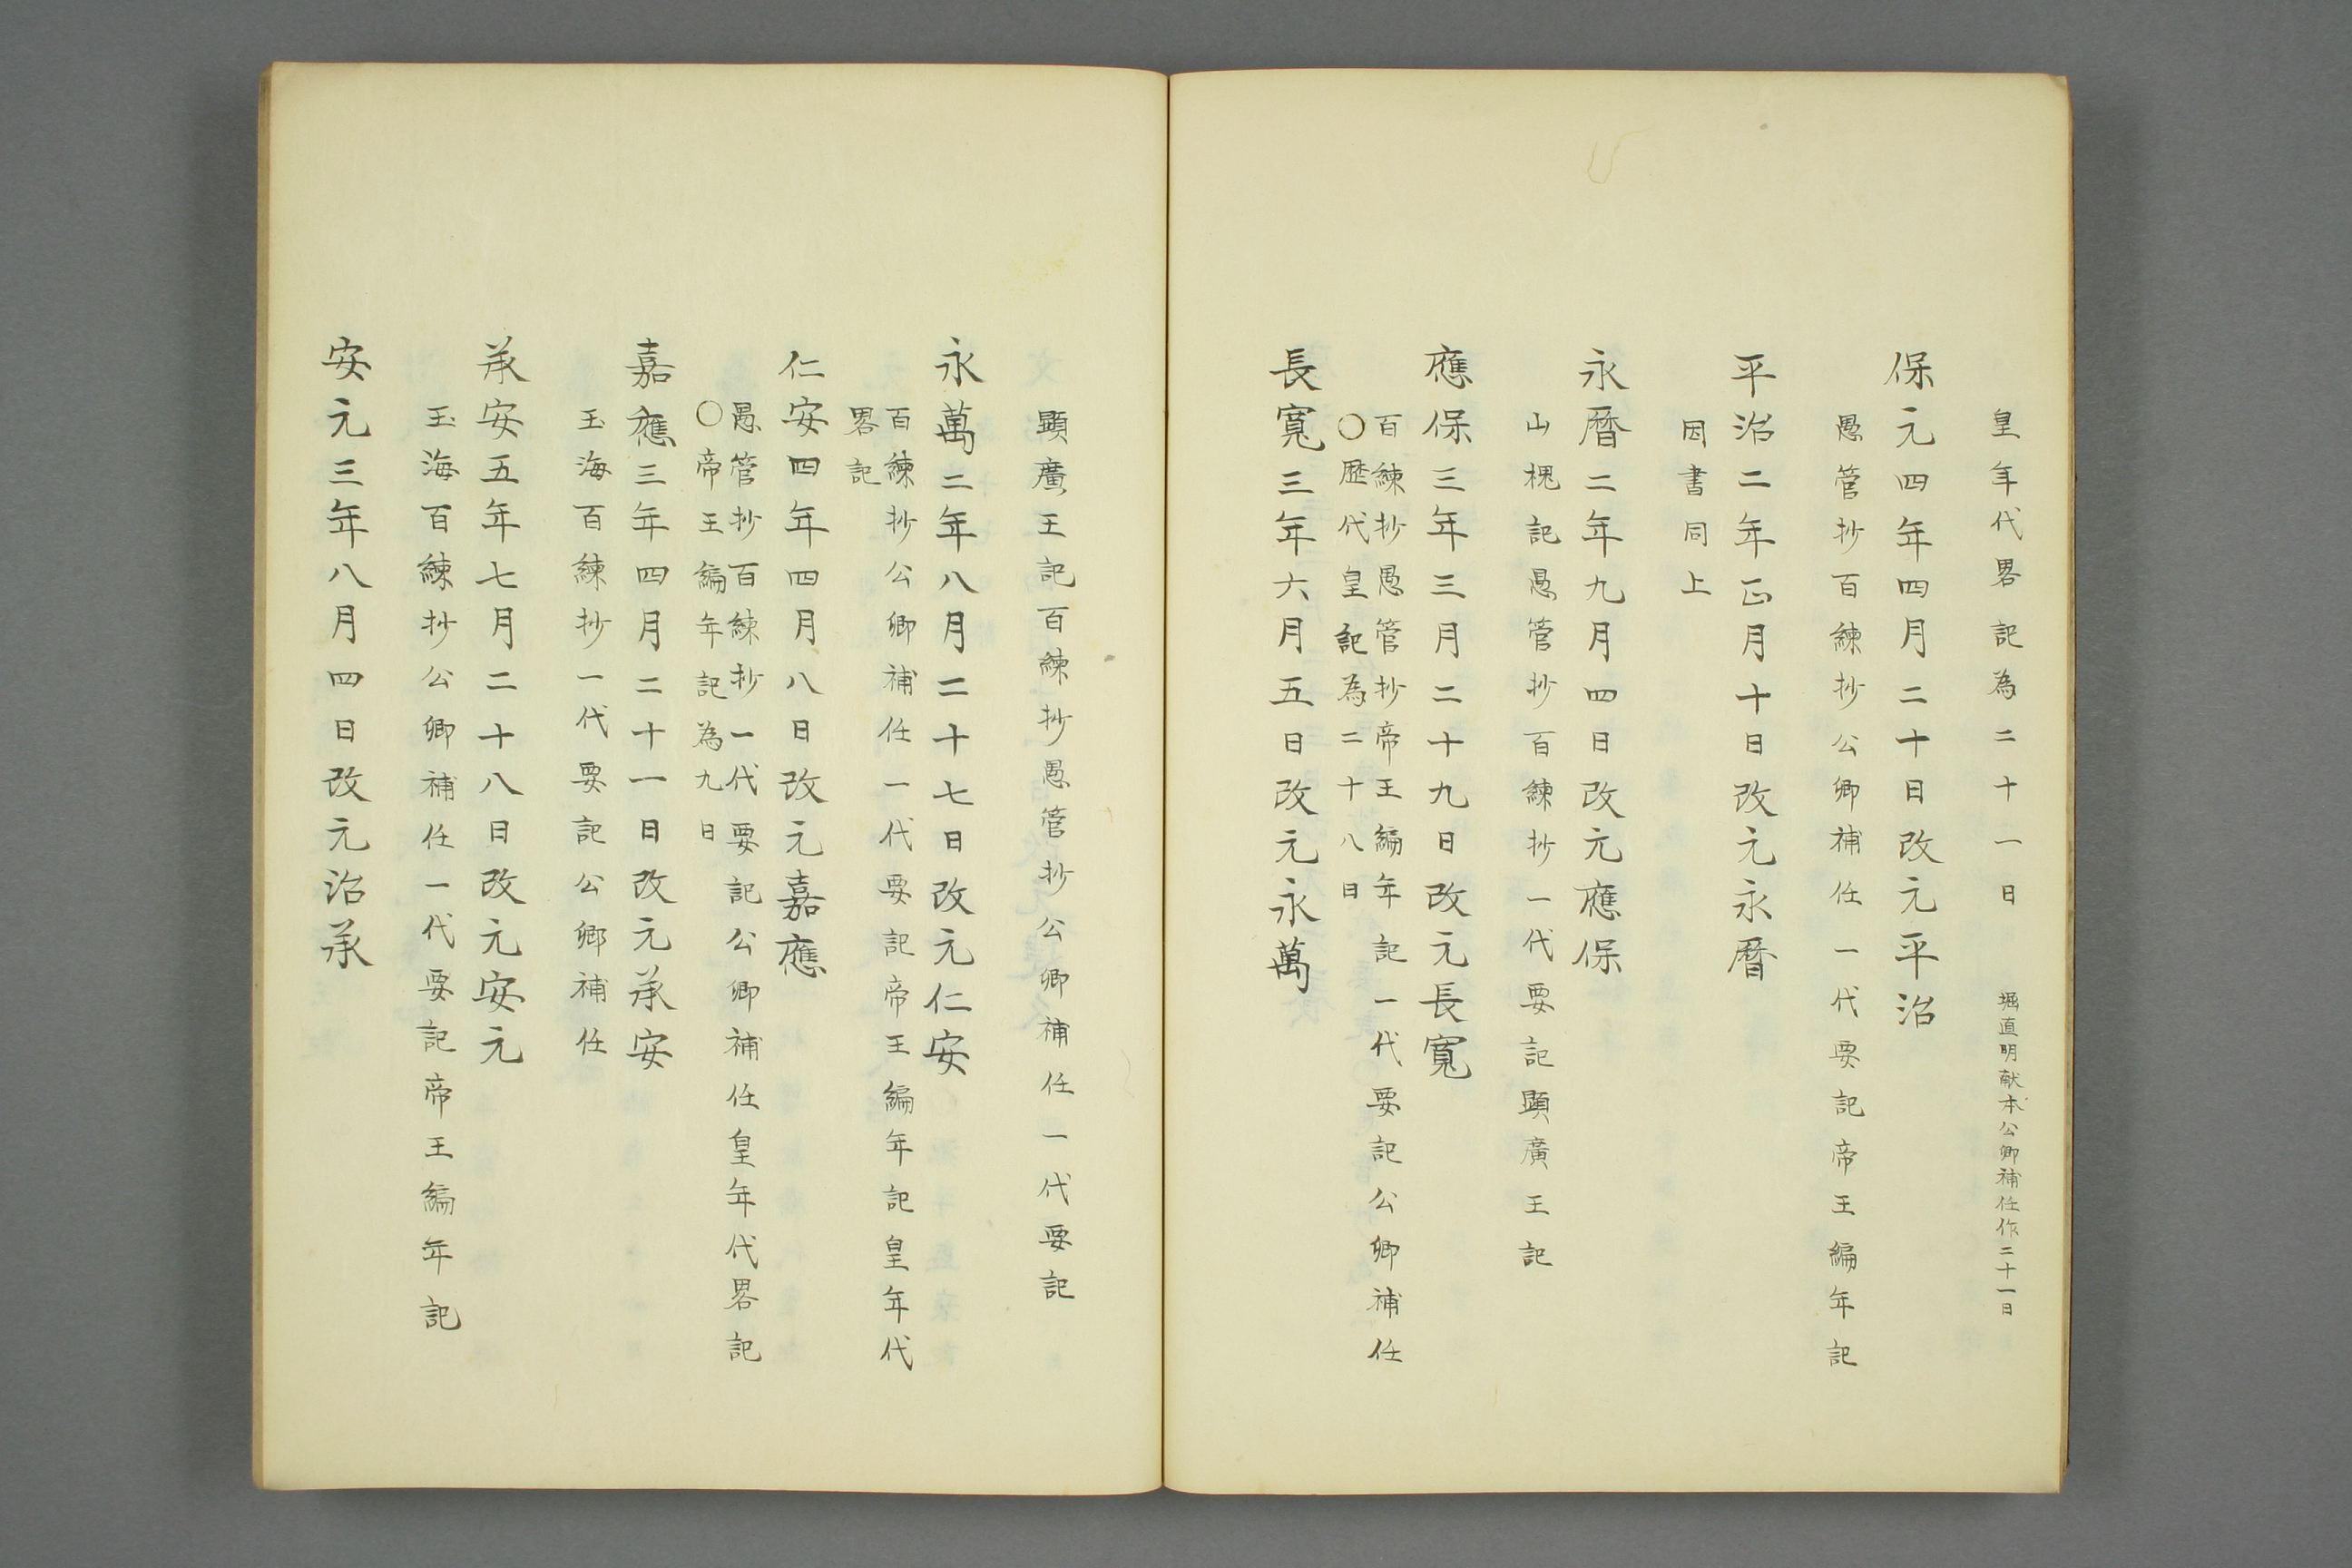 皇年代畧記為二十一日　堀直明献本公卿補任作二十一日
保元四年四月二十日改元平治
愚管抄百練抄公卿補任一代要記帝王編年記
平治二年正月十日改元永暦
因書同上
永暦二年九月四日改元應保
山槐記愚管抄百練抄一代要記顕廣王記
應保三年三月二十九日改元長寛
百練抄愚管抄帝王編年記一代要記公卿補任
〇歴代皇記為二十八日
長寛三年六月五日改元永萬
顕廣王記百練抄愚管抄公卿補任一代要記
永萬二年八月二十七日改元仁安
百練抄公卿補任一代要記帝王編年記皇年代
畧記
仁安四年四月八日改元嘉應
愚管抄百練抄一代要記公卿補任皇年代畧記
〇帝王編年記為九日
嘉應三年四月二十一日改元承安
玉海百練抄一代要記公卿補任
承安五年七月二十八日改元安元
玉海百練抄公卿補任一代要記帝王編年記
安元三年八月四日改元治承